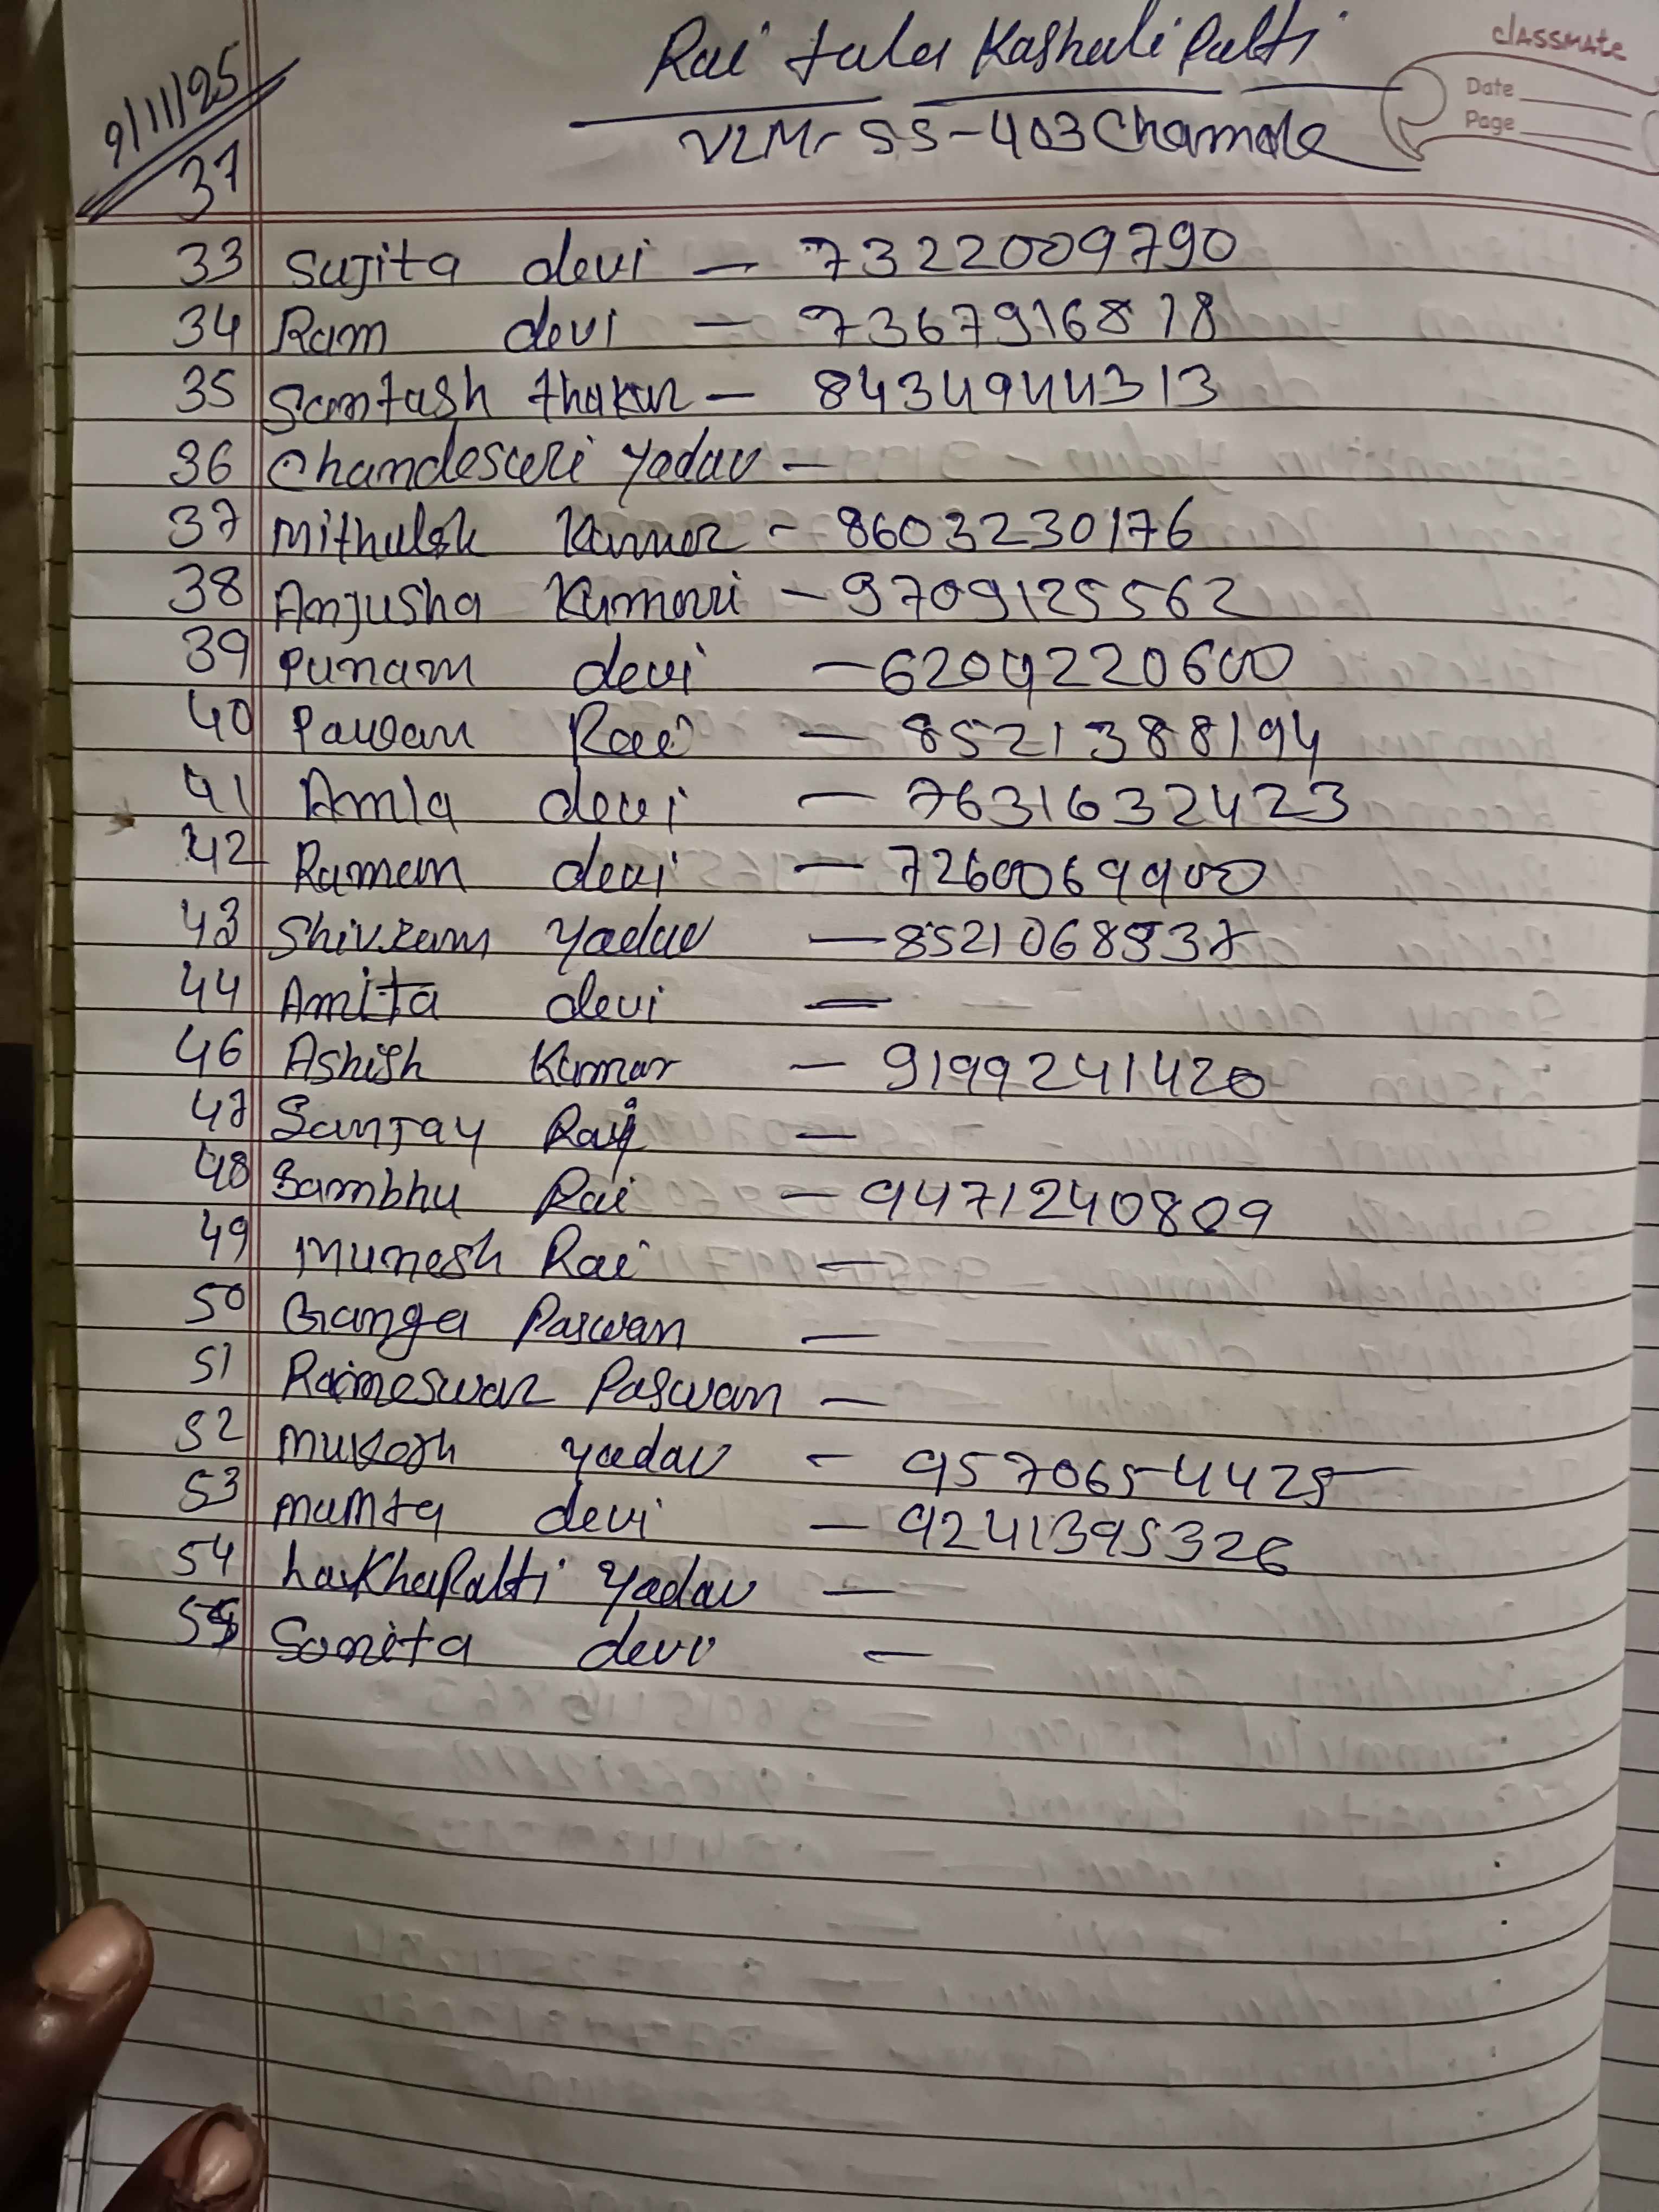 Rai tala Kashali Patti
classmate
Date
Page
9/11/25
VLMr SS-403 Chamale
37
33 Sujita devi - 7322009790
34 Ram devi - 7367916818
35 Santash thakur - 8434944313
36 Chandesweri Yadav -
37 Mithulesh Kumar - 8603230176
38 Anjusha Kumari - 9709125562
39 Punam devi - 6204220600
40 Pawan Rai - 8521388194
41 Amla devi - 7631632423
42 Raman devi - 7260069900
43 Shivram Yadav - 8521068537
44 Amita devi -
46 Ashish Kumar - 9199241420
47 Sanjay Rai -
48 Sambhu Rai - 9471240809
49 Munesh Rai -
50 Ganga Paswan -
51 Rameswar Paswan -
52 Mukesh yadav - 9570654425
53 Mamta devi - 9241395326
54 LakhaPatti Yadav -
55 Sonita devi -